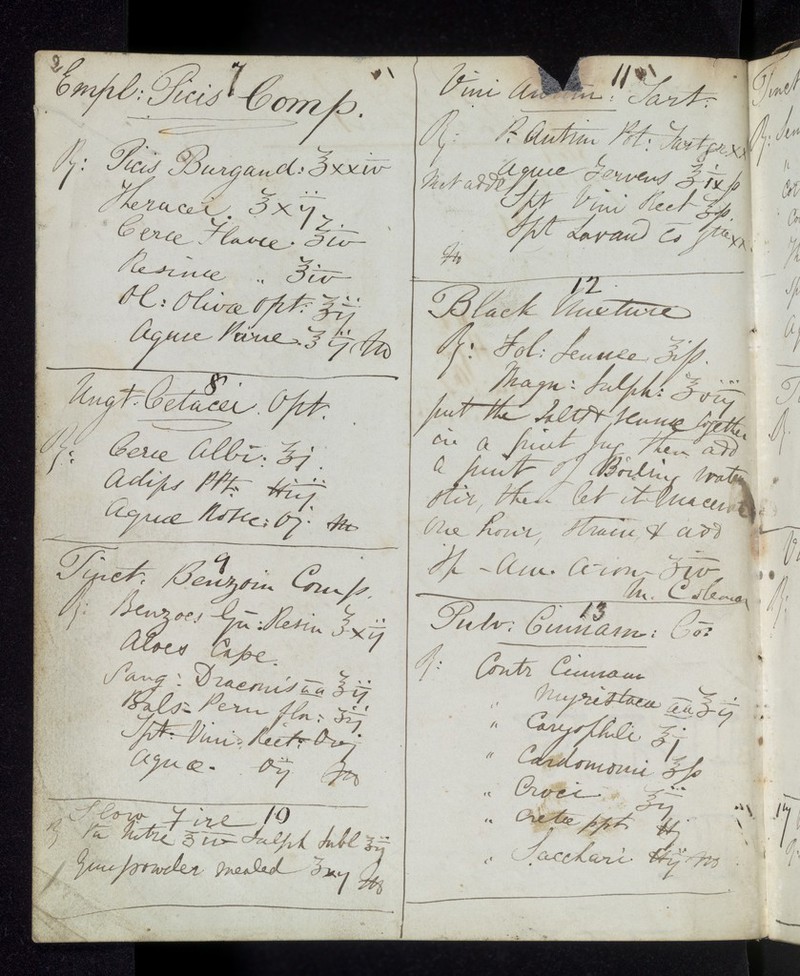 7
Empl: Picis Comp.
℞: Picis Burgund: ℥xxiv
Theracei. ℥xij
Ceræ Flavæ. ℥iv
Resinæ " ℥iv
Ol: Olivæ opt: ℥ij
Aquæ Puræ. ℥ij M
8
Ungt. Cetacei Opt.
℞: Ceræ Albi: ℥j
Adips ppt. ℔iij
Aquæ Rosæ: Oj. M
9
Tinct. Benzoin Comp.
℞: Benzoes Gu: Resin ℥xij
Aloes Cape.
Sang: Draconis āā ℥ij
Bals- Peru fln: ℥ij
Spt. Vini. Rect.
Aquæ. Oij M
Slow Fire 10
℞ Nitre ℥iv Sulph Subl ℥ij
Gunpowder mealed M
11
Vini Antim: Tart.
℞: P. Antim Pot: Tart grxx
Aquæ Fervens ℥ixſs
Met adde Spt Vini Rect ℥ſs.
Spt Lavand Co
M
12
Black Mixture
℞: Fol: Sennæ ℥iſs.
Magn: Sulph: ℥viij
put the Salts & senna together
in a pint jug then add
a pint of Boiling water
stir, then let it macerate
one hour, strain, & add
Sp - Am. Arom- ℥iv
M. Coleman
13
Pulv: Cinnam: Co:
℞: Contr Cinnam
" Myristacæ āā ℥ij
" Caryophili ℥j
" Cardomomi ℥ſs
" Croci ℥ij
" Cretæ ppt ℔j
" Sacchari ℔ij M